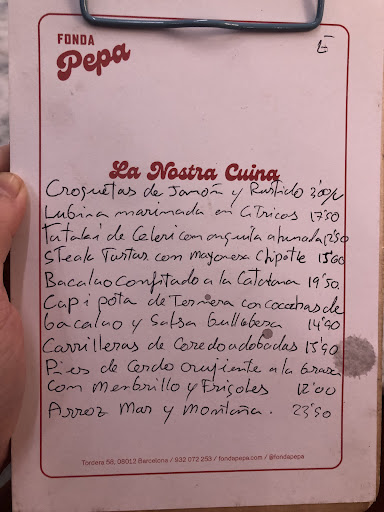 FONDA
Pepa
€
La Nostra Cuina
Croquetas de Jamón y Rustido 2'00/u
Lubina marinada en Cítricos 17'50
Tataki de Celeri con anguila ahumada
Steak Tartar con mayonesa Chipotle
Bacalao Confitado a la Catalana 19'50
Cap i pota de Ternera con cocochas de
bacalao y Salsa Gullabera 14'90
Carrilleras de Cerdo adobadas 15'90
Pies de Cerdo crujiente a la brasa
con Membrillo y Frigoles 12'00
Arroz Mar y Montaña. 23'90
Tordera 58, 08012 Barcelona / 932 072 253 / fondapepa.com / @fondapepa